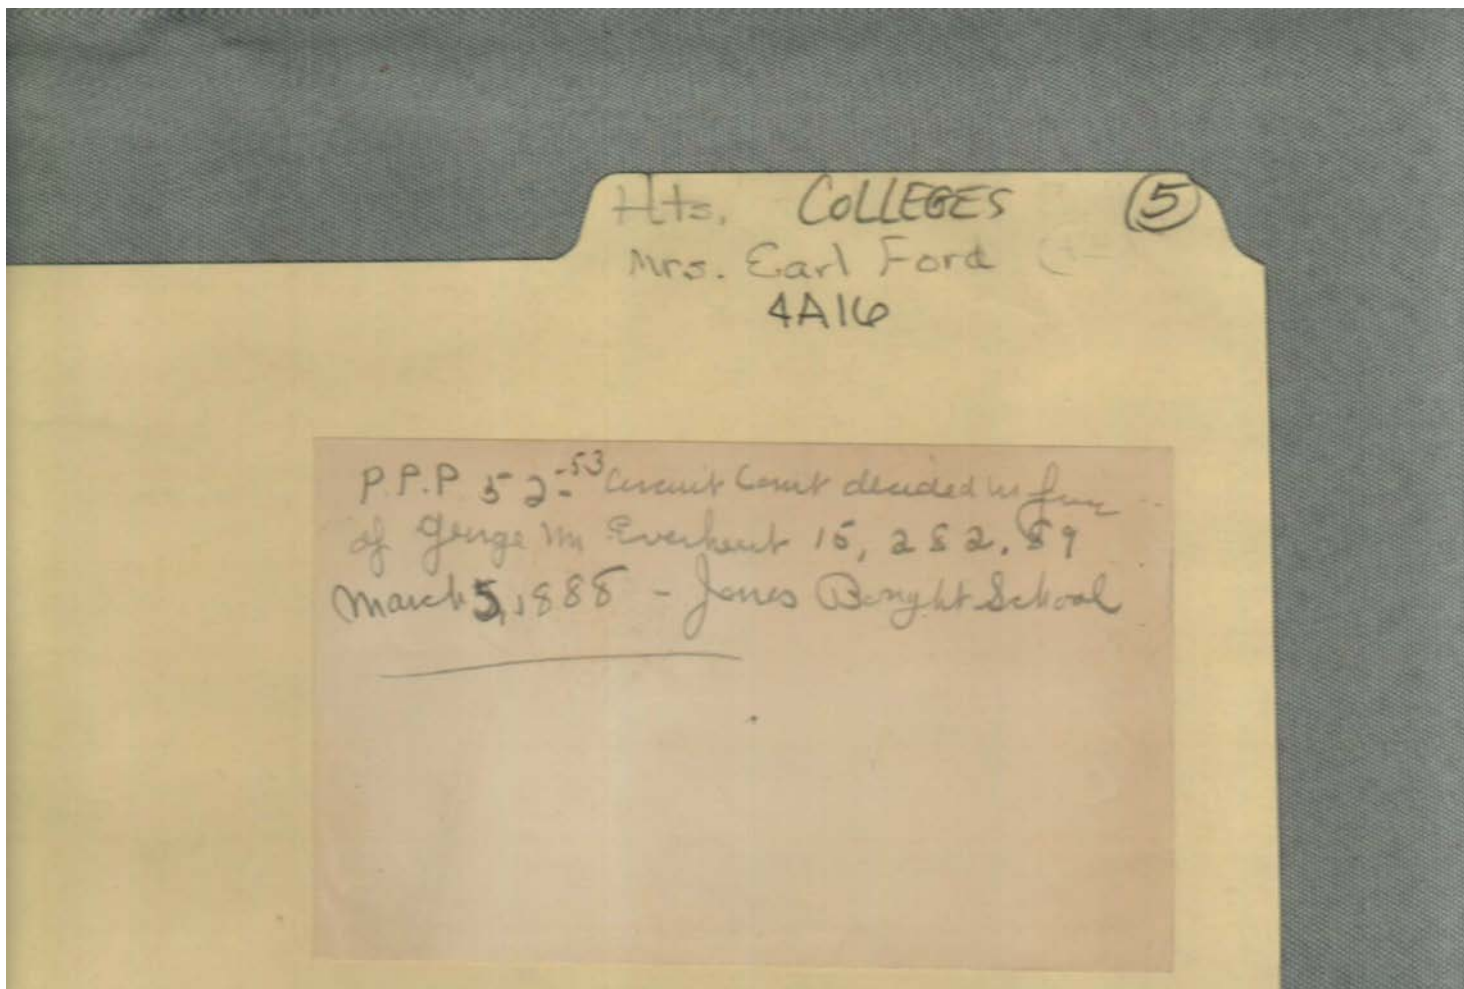 Hts. COLLEGES 5
Mrs. Earl Ford
4A16
P.P.P 52-53 Circuit Court decided in
of George M Everhart 15,282.89
March 5, 1888 - Jones Bought School